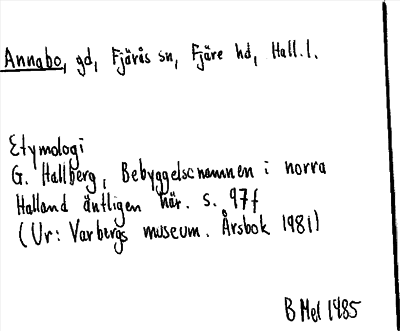 Annabo, gd, Fjärås sn, Fjäre hd, Hall. l.
Etymologi
G. Hallberg, Bebyggelsenamnen i norra
Halland äntligen här. s. 97f
(Ur: Varbergs museum. Årsbok 1981)
B Mel 1985